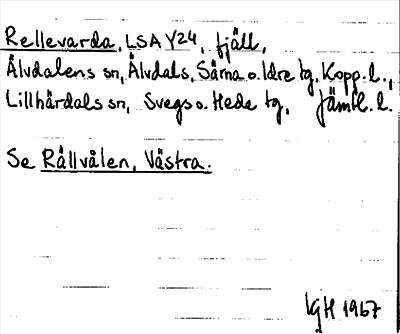 Rellevarda, LSA Y24, fjäll,
Älvdalens sn, Älvdals, Särna o. Idre tg, Kopp. l.,
Lillhärdals sn, Svegs o. Hede tg, Jämtl. l.
Se Rällvålen, Västra.
IGH 1967